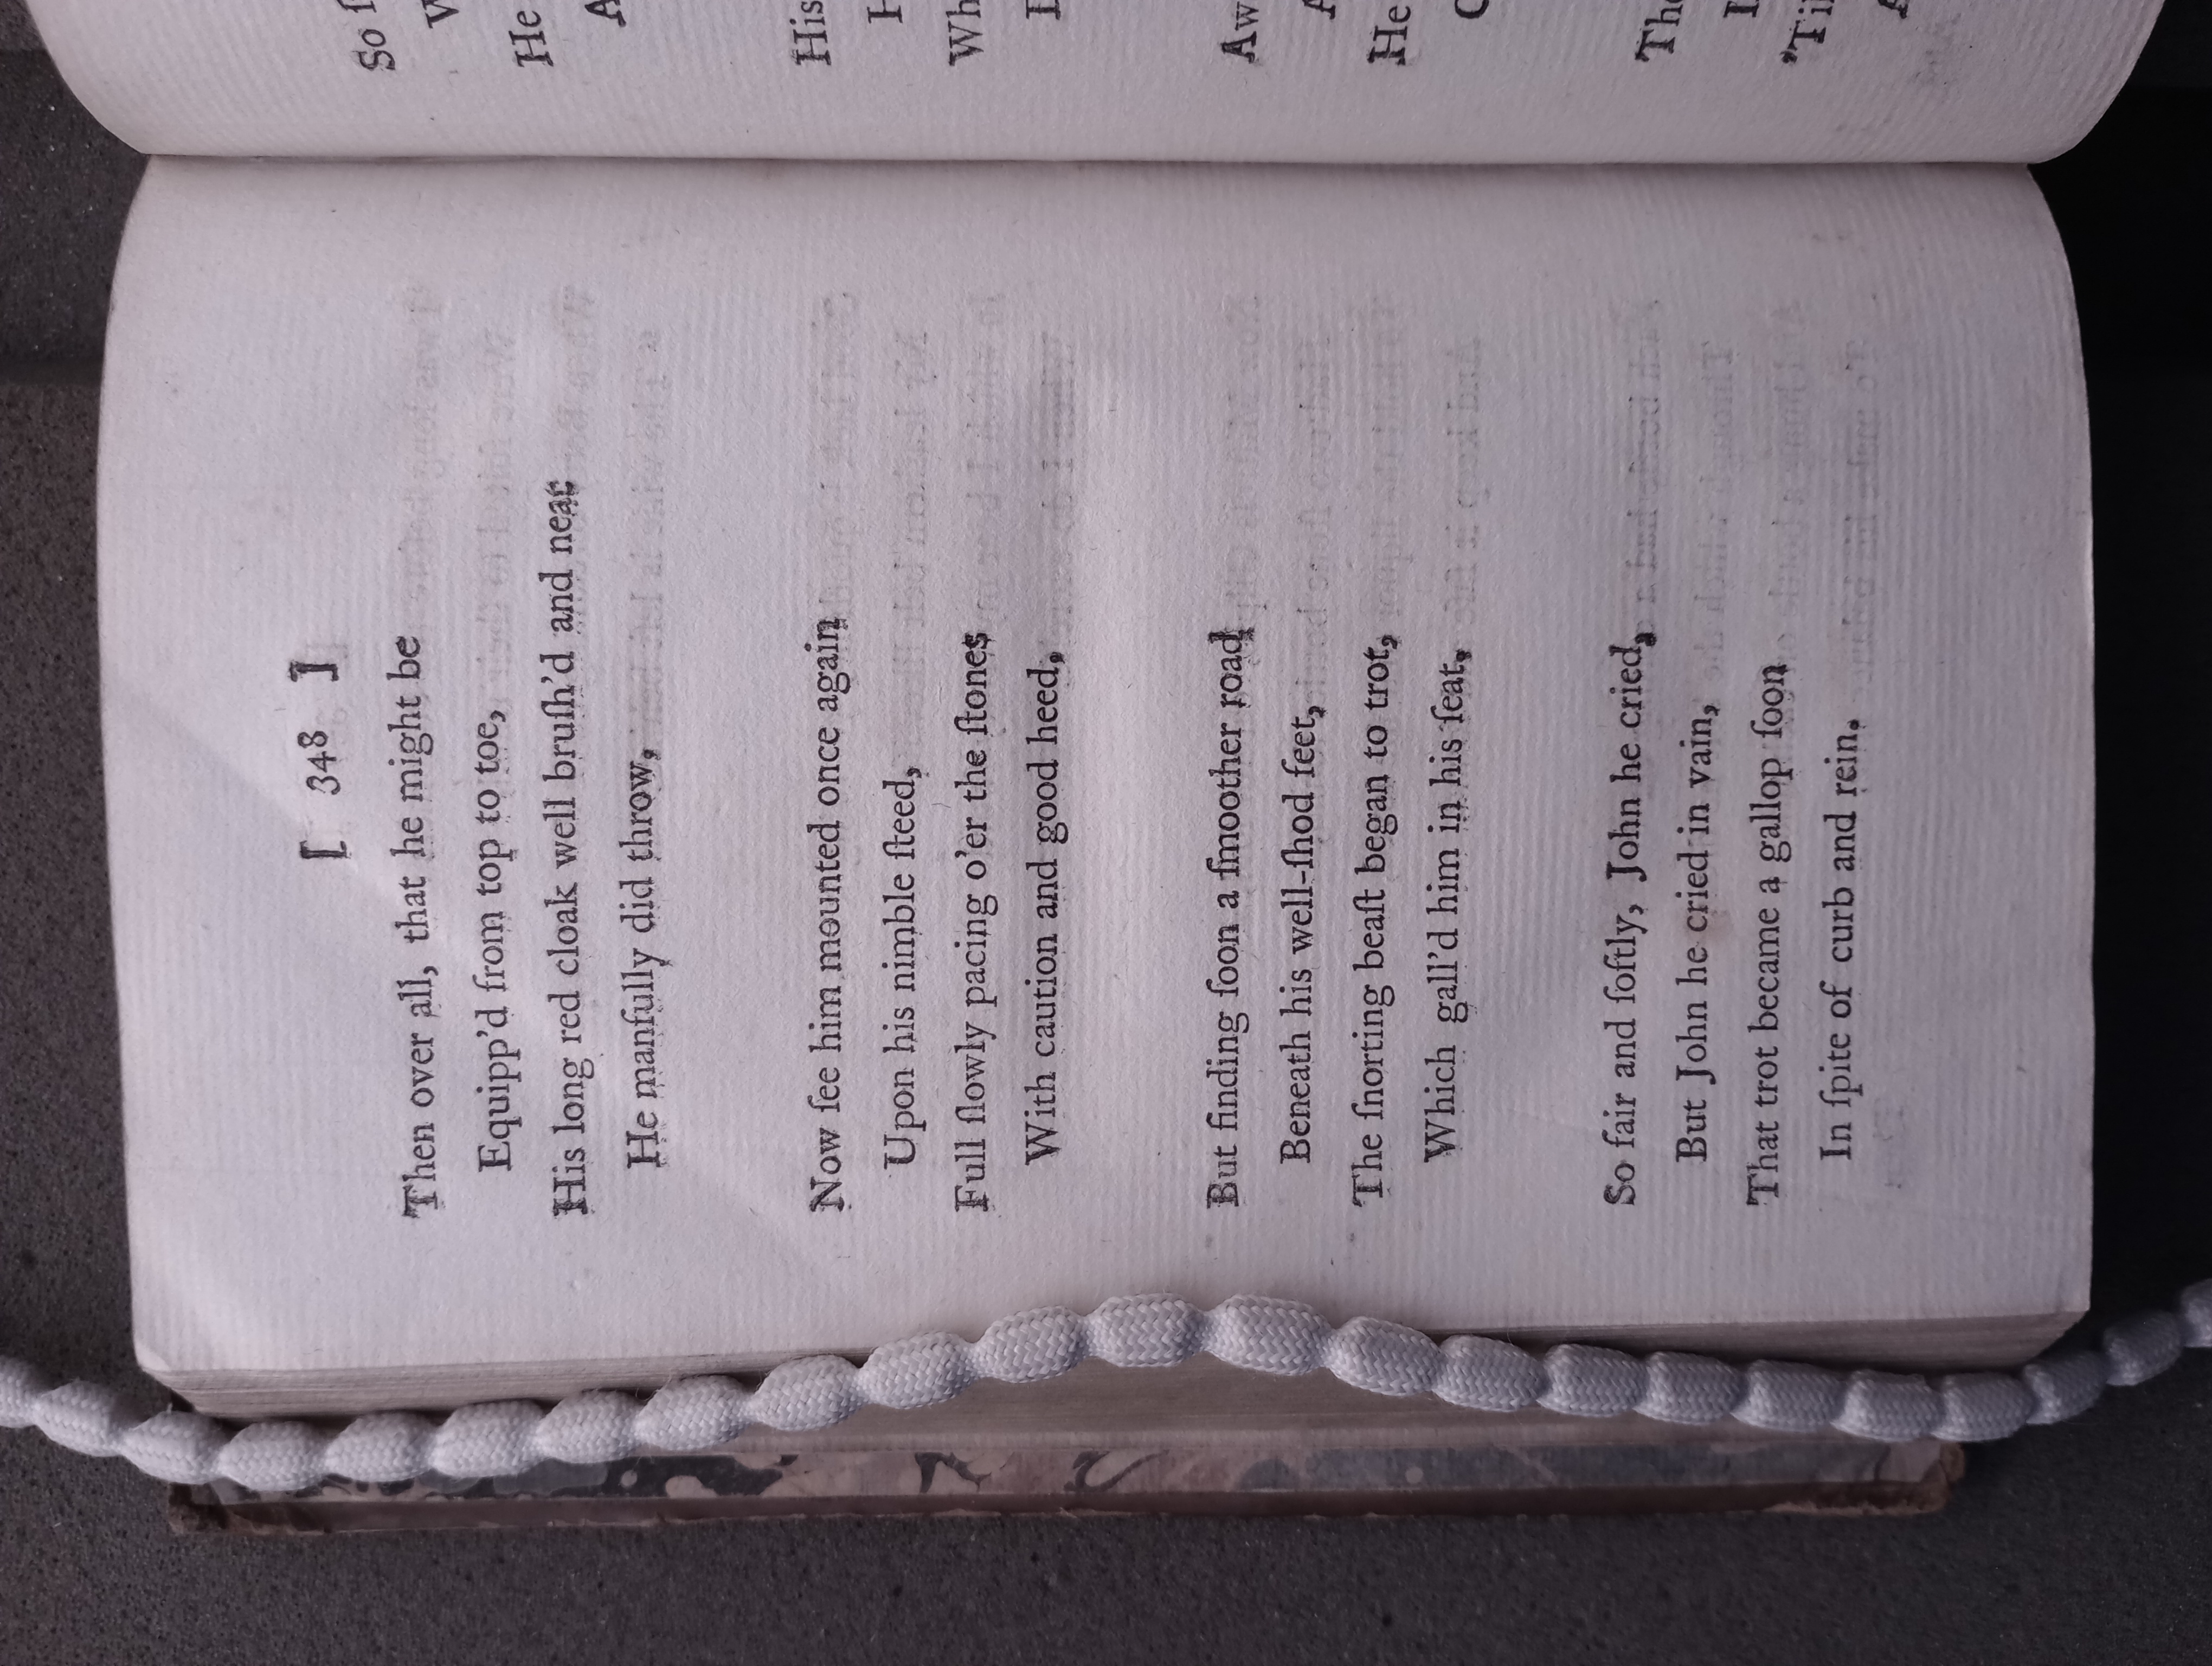 [ 348 ]
Then over all, that he might be
Equipp'd from top to toe,
His long red cloak well bruſh'd and near
He manfully did throw,
Now ſee him mounted once again
Upon his nimble ſteed,
Full ſlowly pacing o'er the ſtones
With caution and good heed,
But finding ſoon a ſmoother road
Beneath his well-ſhod feet,
The ſnorting beaſt began to trot,
Which gall'd him in his ſeat,
So fair and ſoftly, John he cried,
But John he cried in vain,
That trot became a gallop ſoon
In ſpite of curb and rein.
So
He
His
Wh
Aw
He
The
'Til